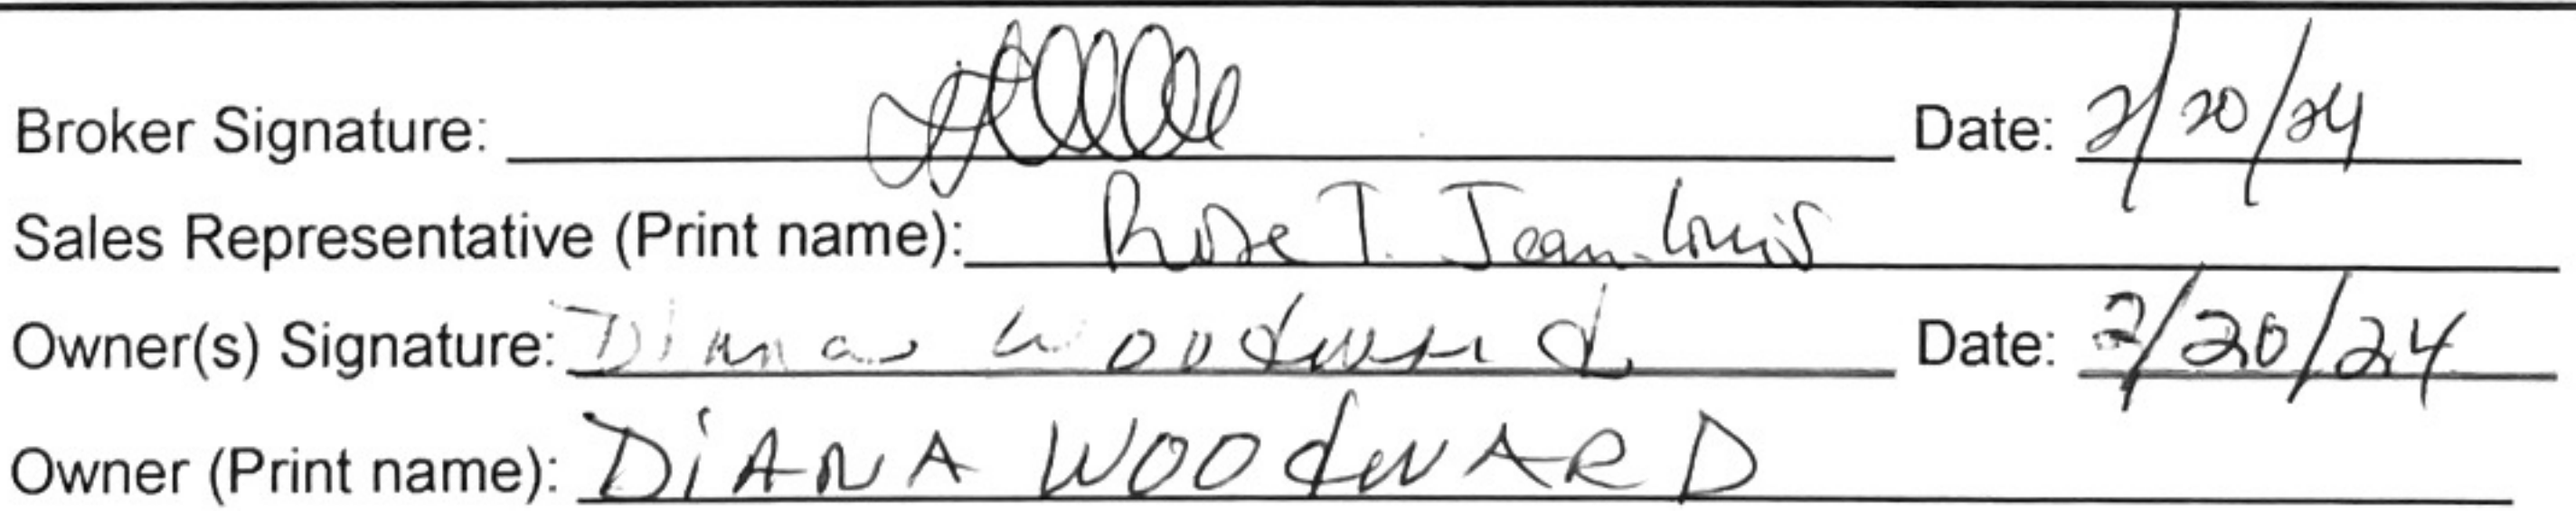 Broker Signature: Date: 2/20/24
Sales Representative (Print name): Rose T. Jean-Louis
Owner(s) Signature: Diana Woodward Date: 2/20/24
Owner (Print name): DiANA WOODWARD